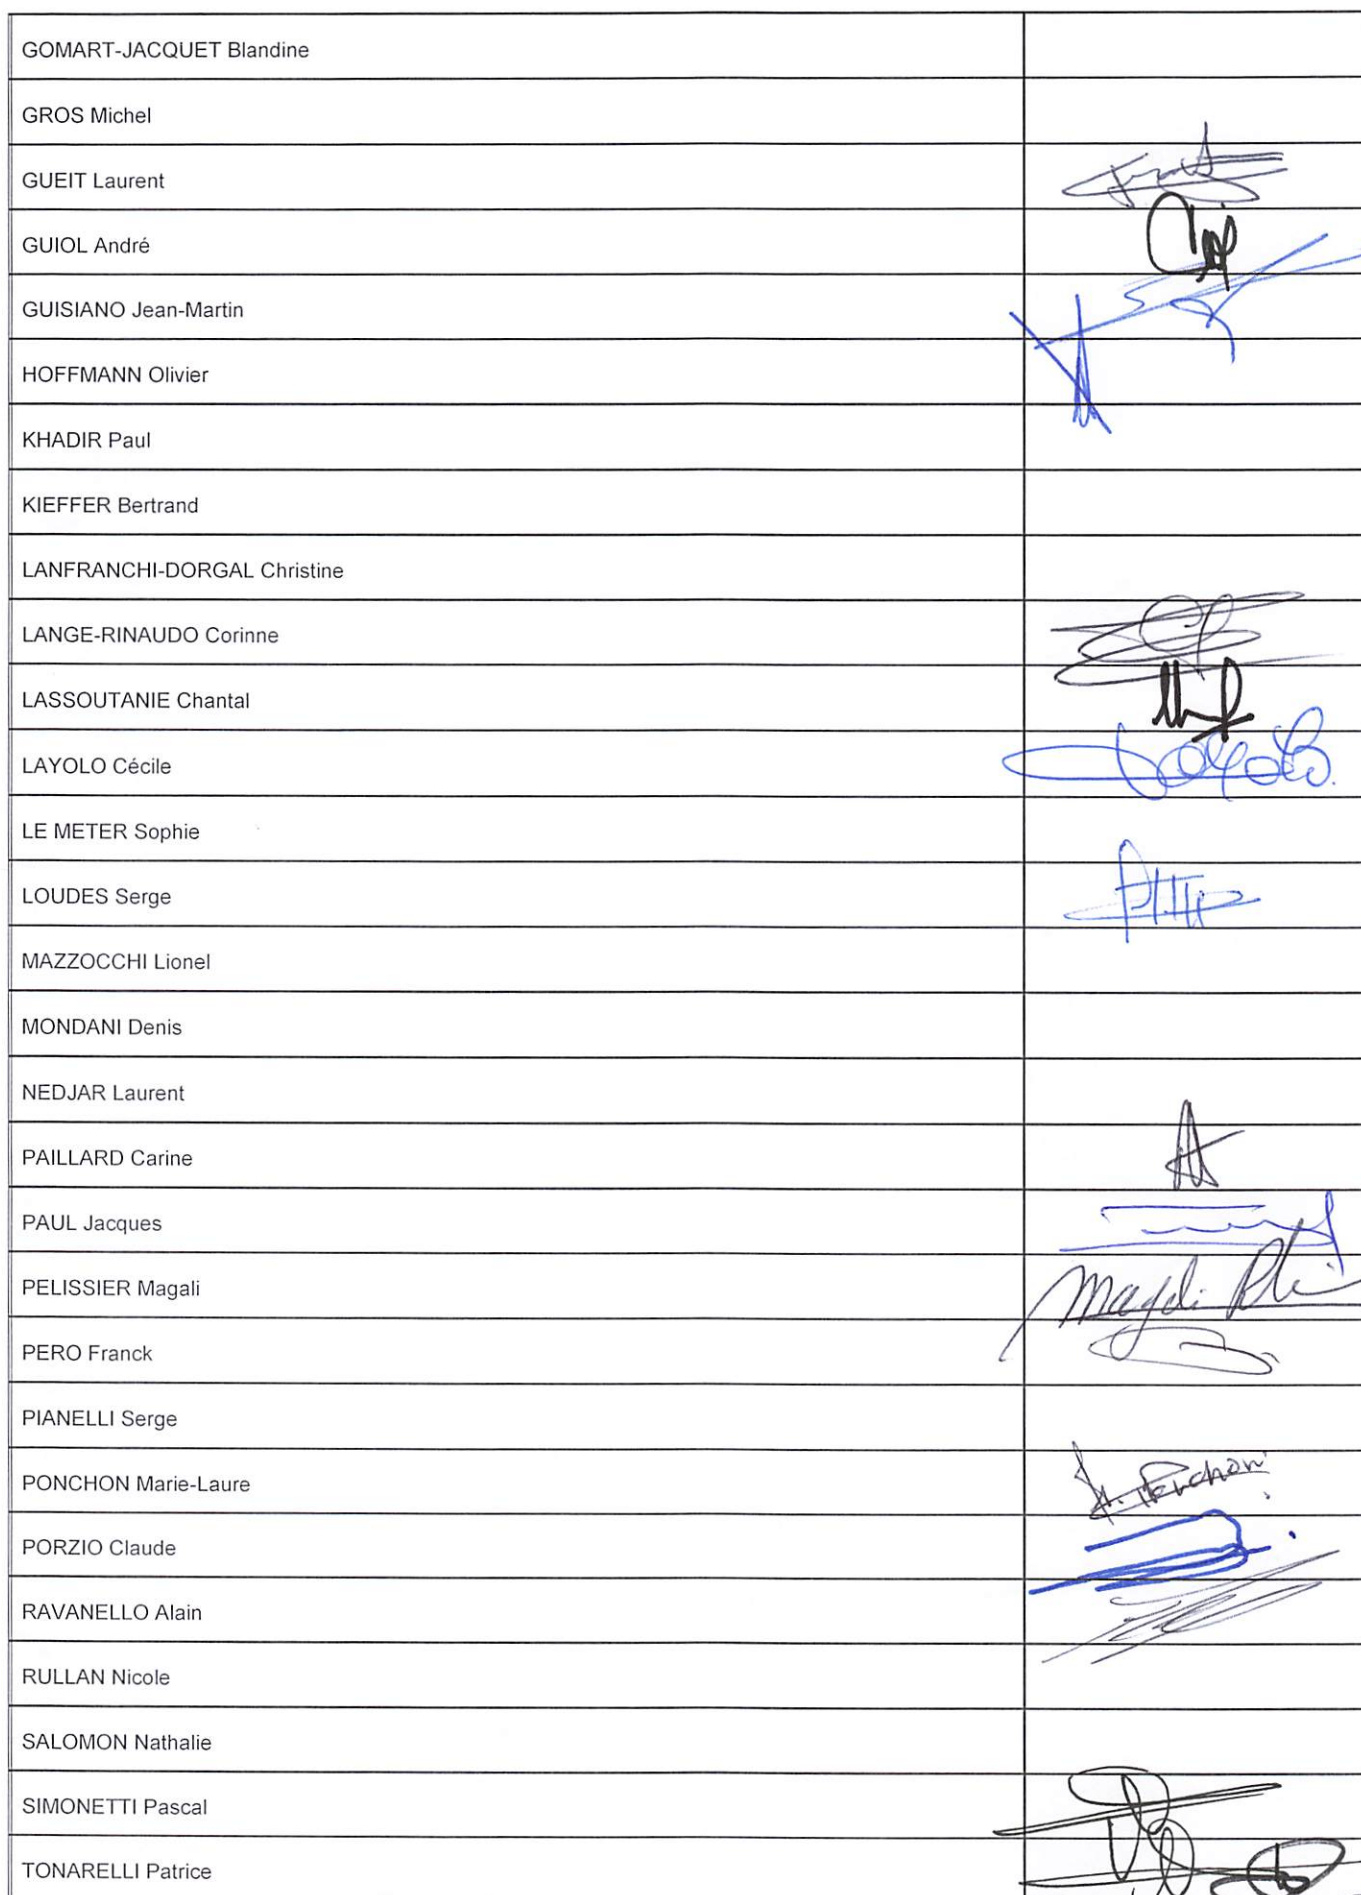 GOMART-JACQUET Blandine
GROS Michel
GUEIT Laurent
GUIOL André
GUISIANO Jean-Martin
HOFFMANN Olivier
KHADIR Paul
KIEFFER Bertrand
LANFRANCHI-DORGAL Christine
LANGE-RINAUDO Corinne
LASSOUTANIE Chantal
LAYOLO Cécile
LE METER Sophie
LOUDES Serge
MAZZOCCHI Lionel
MONDANI Denis
NEDJAR Laurent
PAILLARD Carine
PAUL Jacques
PELISSIER Magali
PERO Franck
PIANELLI Serge
PONCHON Marie-Laure Ponchon
PORZIO Claude
RAVANELLO Alain
RULLAN Nicole
SALOMON Nathalie
SIMONETTI Pascal
TONARELLI Patrice